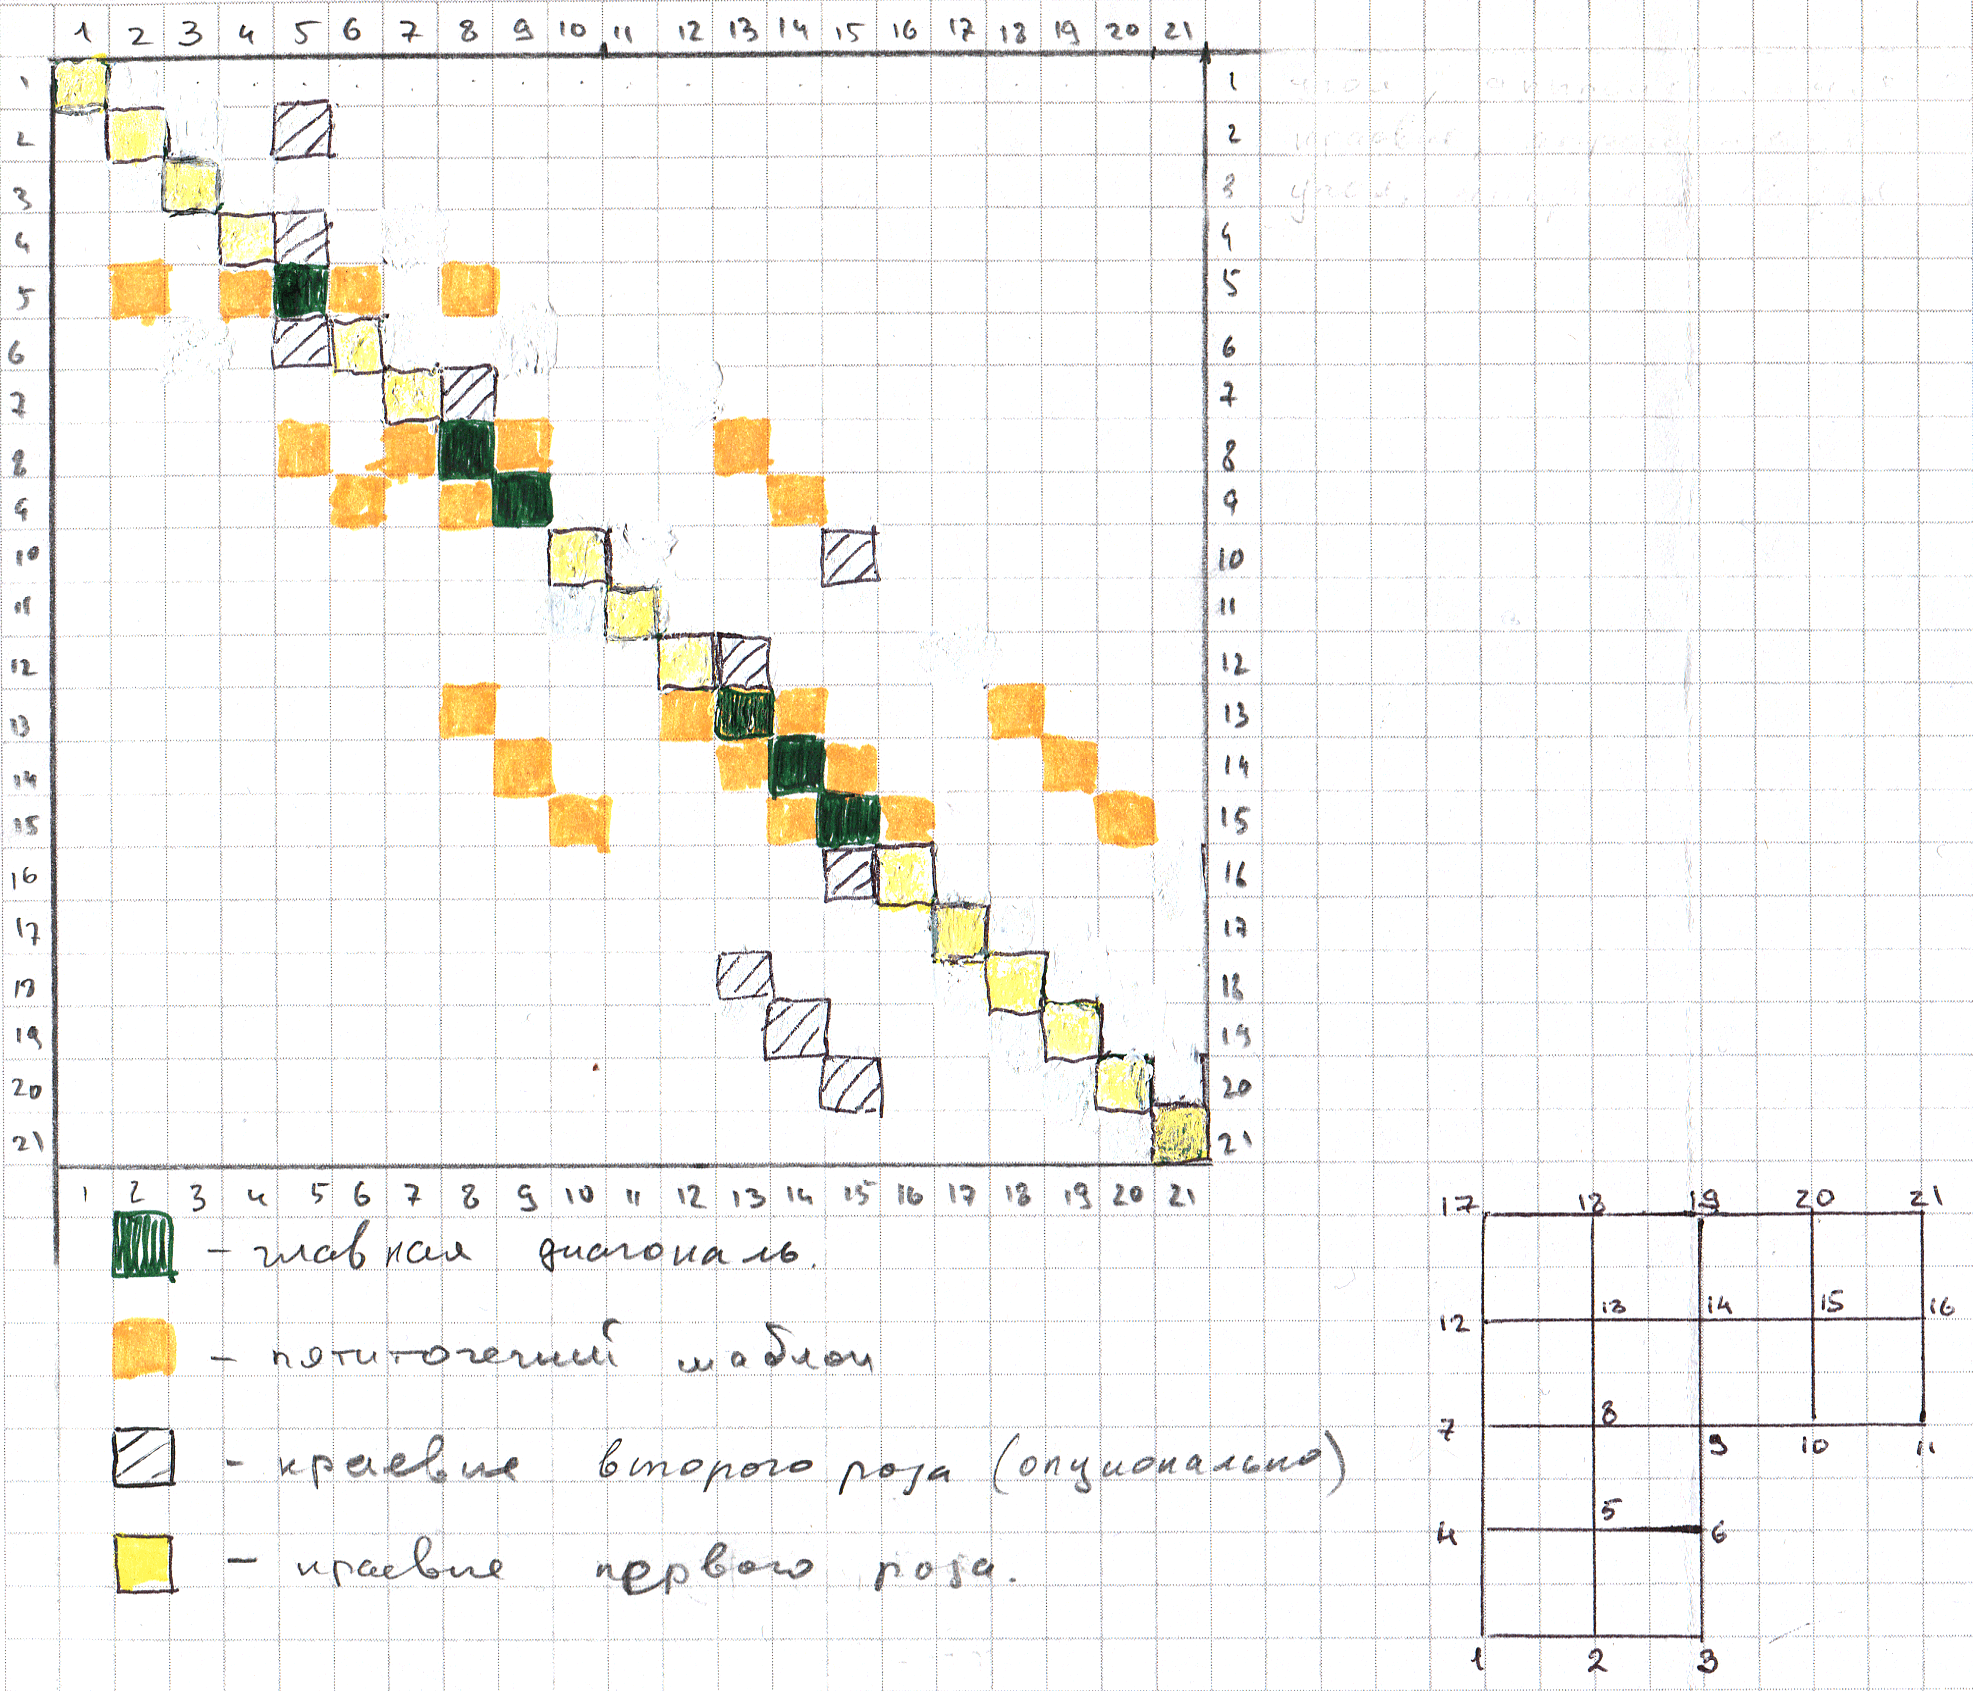 1 2 3 4 5 6 7 8 9 10 11 12 13 14 15 16 17 18 19 20 21
1 1
2 2
3 3
4 4
5 5
6 6
7 7
8 8
9 9
10 10
11 11
12 12
13 13
14 14
15 15
16 16
17 17
18 18
19 19
20 20
21 21
1 2 3 4 5 6 7 8 9 10 11 12 13 14 15 16 17 18 19 20 21
- главная диагональ.
- пятиточечный шаблон
- краевые второго рода (опционально)
- краевые первого рода.
17 18 19 20 21
12 13 14 15 16
7 8 9 10 11
4 5 6
1 2 3